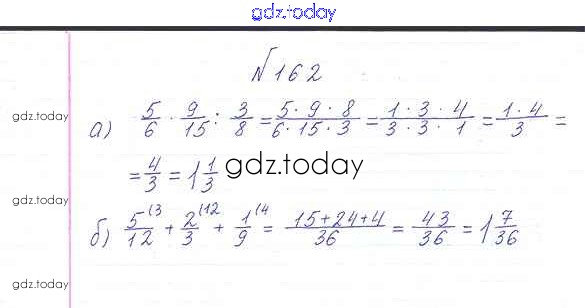 gdz.today
№ 162
gdz.today
а) 5/6 · 9/15 : 3/8 = 5 · 9 · 8 / 6 · 15 · 3 = 1 · 3 · 4 / 3 · 3 · 1 = 1 · 4 / 3 =
= 4/3 = 1 1/3
gdz.today
gdz.today
б) 5/12 (3 + 2/3 (12 + 1/9 (4 = 15+24+4 / 36 = 43/36 = 1 7/36
gdz.today